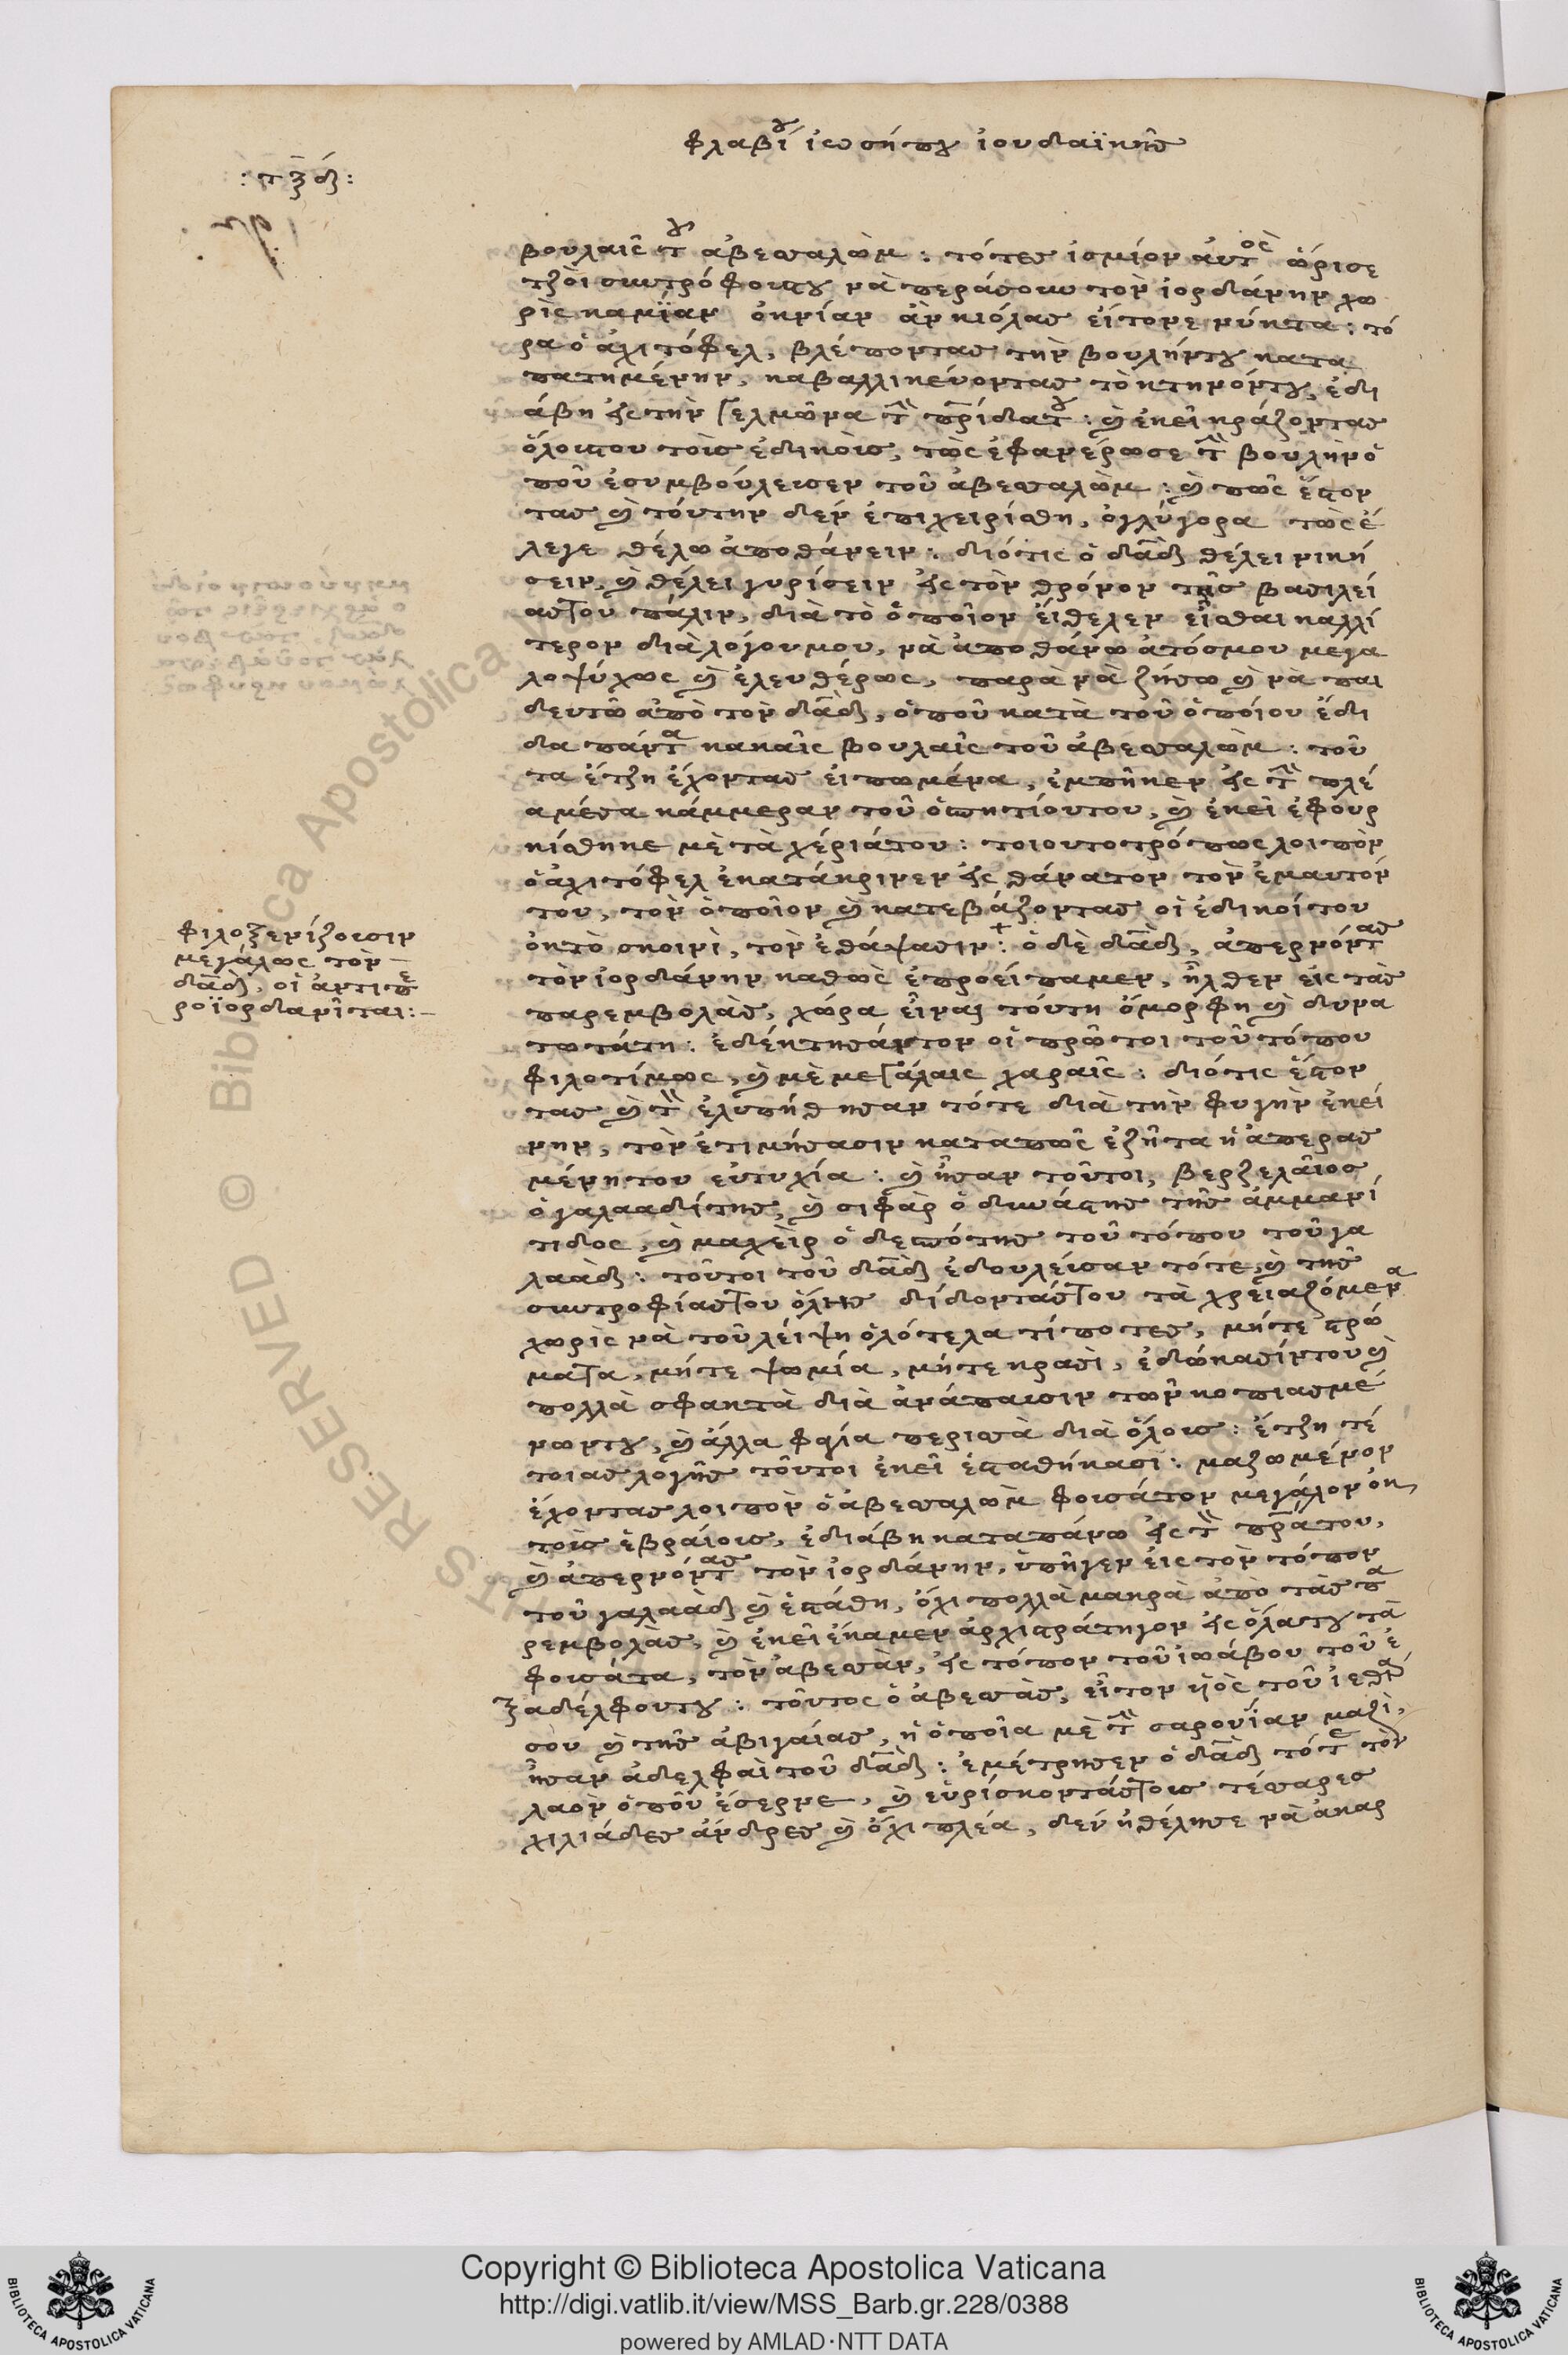 φλαβίου ἰωσήπου ἰουδαϊκῆς
βουλαῖς τοῦ ἀβεσαλὼμ : τότες ἰσμίον αὐτὸς ὥρισε
τζὸι συντρόφουςτου νὰ περάσουν τὸν ἰορδάνην χω
ρὶς καμΐαν ὀκνίαν ἂν κιόλας εἴτονε νύκτα : τό
ρα ὁ ἀχιτόφελ, βλέποντας τὴν βουλήντου κατα
πατημένην, καβαλλικεύοντας τὸ κτηνόντου, ἐδι
άβη εἰς τὴν γελμῶνα τὴν πατρίδατου : καὶ ἐκεῖ κράζοντας
ὅλουςτου τοὶς ἐδικοὶς, τῶς ἐφανέρωσε τὴν βουλὴν ὁ
ποῦ ἐσυμβούλεισεν τοῦ ἀβεσαλὼμ : καὶ πῶς ἔστον
τας καὶ τούτην δὲν ἐπιχειρίσθη, ὀγλύγορα τῶς ἔ
λεγε θέλω ἀποθάνειν : διότις ὁ δαδ θέλει νική
σειν, καὶ θέλει γυρίσειν εἰς τὸν θρόνον τῆς βασιλεί
αςτου πάλιν, διὰ τὸ ὁποῖον εἴθελεν εἶσθαι καλλί
τερον διὰ λόγουμου, νὰ ἀποθάνω ἀτόσμου μεγα
λοψύχως καὶ ἐλευθέρως, παρὰ νὰ ζήσω καὶ νὰ παι
δευτῶ ἀπὸ τὸν δαδ, ὁποῦ κατὰ τοῦ ὁποίου ἔδι
δα πάντα κακαῖς βουλαῖς τοῦ ἀβεσαλὼμ : τοῦ
τα ἔτζη ἔχοντας εἰπωμένα, ἐμπῆκεν εἰς τὴν πλέ
α μέσα κάμμεραν τοῦ ὁσπητίουτου, καὶ ἐκεὶ ἐφούρ
κίσθηκε μὲ τὰ χέριάτου : τοιουτοτρόπως λοιπὸν
ὁ ἀχιτόφελ ἐκατάκρινεν εἰς θάνατον τὸν ἐμαυτόν
του, τὸν ὁποῖον καὶ κατεβάζοντας οἱ ἐδικοίτου
ὀκτὸ σκοινὶ, τὸν ἐθάψασιν : ὁ δὲ δαδ, ἀπερνόντας
τὸν ἰορδάνην καθὼς ἐπροείπαμεν, ἦλθεν εἰς τὰς
παρεμβολὰς, χώρα εἶναι τούτη ὄμορφη καὶ δυνα
τωτάτη : ἐδέκτησάντον οἱ πρῶτοι τοῦ τόπου
φιλοτίμως, καὶ μὲ μεγάλαις χαραῖς : διότις ἔστον
τας καὶ τὴν ἐλυπήθησαν τότε διὰ τὴν φυγὴν ἐκεί
νην, τὸν ἐτιμήσασιν καταπῶς ἐζῆτα ἡ ἀπερας
μένητου εὐτυχία : καὶ ἦσαν τοῦτοι, βερζελᾶιος
ὁ γαλααδίτης, καὶ σιφὰρ ὁ δυνάστης τῆς ἀμμανί
τιδος, καὶ μαχεὶρ ὁ δεσπότης τοῦ τόπου τοῦ γα
λαὰδ : τοῦτοι τοῦ δαδ ἐδουλεύσαν τότε, καὶ τῆς
συντροφίαςτου ὅλης δίδοντάςτου τὰ χρειαζόμενα
χωρὶς νὰ τοῦ λείψη ὁλότελα τίποτες, μήτε στρώ
ματα, μήτε ψωμία, μήτε κρασὶ, ἐδώκασίντου καὶ
πολλὰ σφακτὰ διὰ ἀνάπαυσιν τῶν κοπιασμέ
νωντου, καὶ ἄλλα φαγία περισσὰ διὰ ὅλους : ἔτζη τέ
τοιας λογῆς τοῦτοι ἐκεῖ ἐσταθήκασι : μαζωμένον
ἔχοντας λοιπὸν ὁ ἀβεσαλὼμ φουσάτον μεγάλον ὀκ
τοὶς ἑβραίους, ἐδιάβη καταπάνω εἰς τὸν πρᾶτου,
καὶ ἀπερνόντας τὸν ἰορδάνην, ὑπῆγεν εἰς τὸν τόπον
τοῦ γαλαὰδ καὶ ἐστάθη, ὄχι πολλὰ μακρὰ ἀπὸ τὰς πα
ρεμβολὰς, καὶ ἐκεῖ ἔκαμεν ἀρχιστράτηγον εἰς ὅλατου τὰ
φουσάτα, τὸν ἀβεσὰν, εἰς τόπον τοῦ ἰωάβου τοῦ ἐ
ξαδέλφουτου : τοῦτος ὁ ἀβεσὰς, εἶτον ὑιὸς τοῦ ἰεθα
σοὺ καὶ τῆς ἀβιγαίας, ἡ ὁποῖα μὲ τὴν σαρουΐαν μαζὶ,
ἦσαν ἀδελφαὶ τοῦ δαδ : ἐμέτρησεν ὁ δαδ τότε τὸν
λαὸν ὁποῦ ἔσερνε, καὶ εὑρίσκοντάςτους τέσαρες
χιλιάδες ἄνδρες καὶ ὄχι πλέα, δὲν ἠθέλησε νὰ ἀκαρ
φιλοξενίζουσιν
μεγάλως τὸν
δαδ, οἱ ἀντιπε
ροϊορδανῖται :
Copyright © Biblioteca Apostolica Vaticana
http://digi.vatlib.it/view/MSS_Barb.gr.228/0388
powered by AMLAD·NTT DATA
BIBLIOTECA APOSTOLICA VATICANA
BIBLIOTECA APOSTOLICA VATICANA